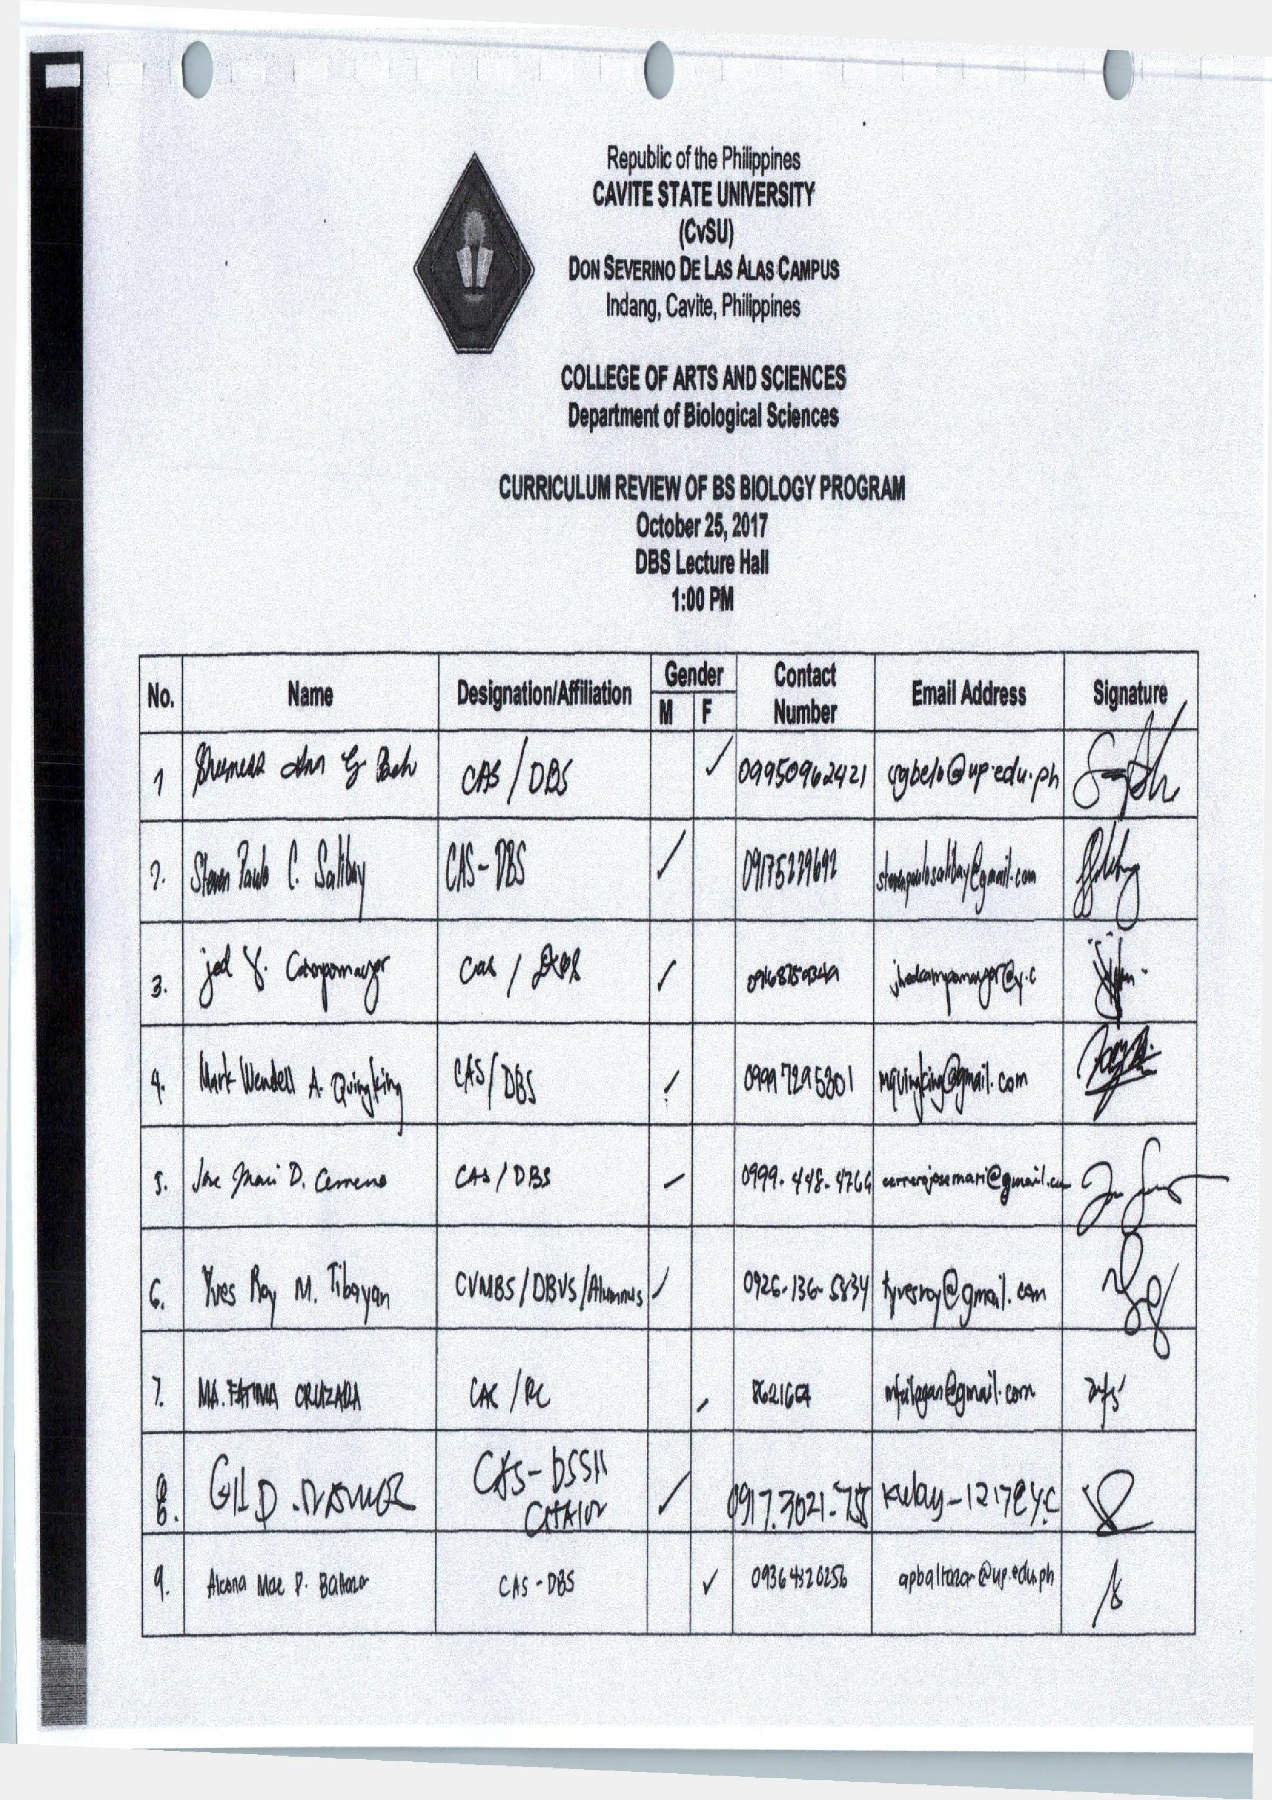 Republic of the Philippines
CAVITE STATE UNIVERSITY
(CvSU)
DON SEVERINO DE LAS ALAS CAMPUS
Indang, Cavite, Philippines
COLLEGE OF ARTS AND SCIENCES
Department of Biological Sciences
CURRICULUM REVIEW OF BS BIOLOGY PROGRAM
October 25, 2017
DBS Lecture Hall
1:00 PM
No. Name Designation/Affiliation Gender M F Contact Number Email Address Signature
1 Ann G CAS / DBS ✓ 09950962421 sgbelo@up.edu.ph
2. Steven Paulo C. Salibay CAS - DBS 09175229692 stevenpaulosalibay@gmail.com
3. jed Y. Campomayor Cas / jhedcampomayor@y.c
4. Mark Wendell A. Quingking CAS/DBS 0999 7295801 mquingking@gmail.com
5. Jose Mari D. CAS / DBS 0999-448-4764
6. Yves Roy M. Tibayan CVMBS/DBVS/Alumnus 0926-136-5834 tyvesroy@gmail.com
7. MA. FATIMA CRUZADA 8621664 mfailagan@gmail.com
8. GIL D. CAS- 0917.3021.
9. Mae P. Baltazar CAS - DBS ✓ 09364520256 apbaltazar@up.edu.ph